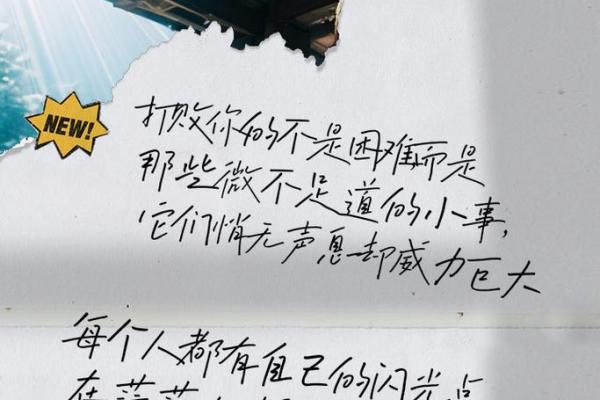 NEW!
打败你的不是困难而是
那些微不足道的小事,
它们悄无声息却威力巨大
每个人都有自己的闪光点
在茫茫